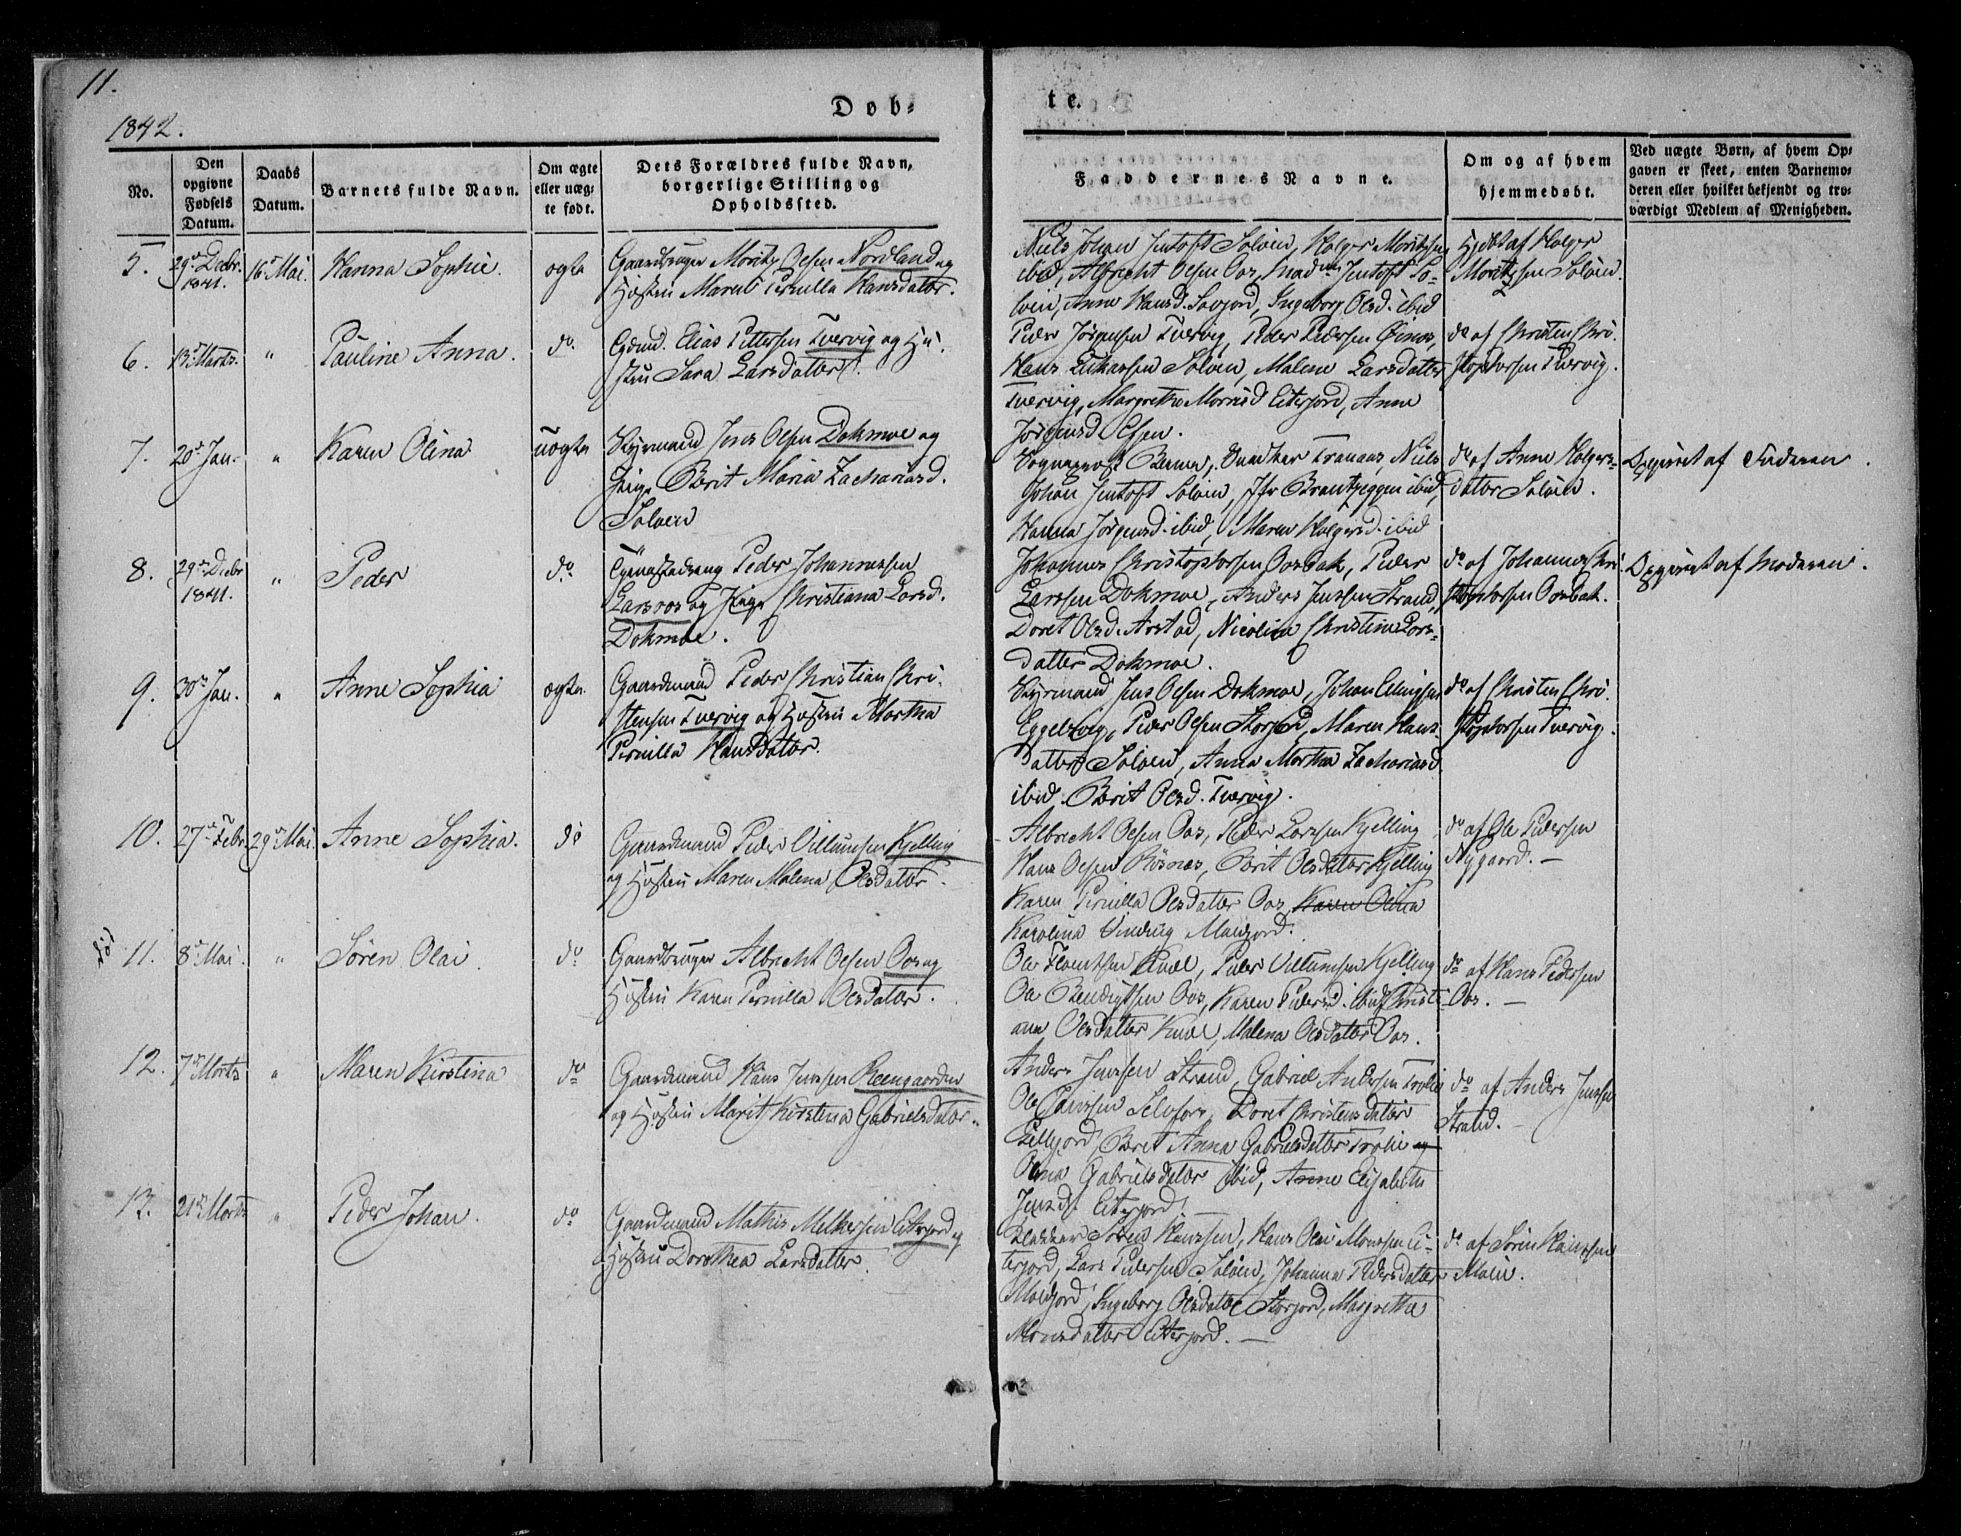 11.
1842.
Døb-
te.
No.
Den opgivne Fødsels Datum.
Daabs Datum.
Barnets fulde Navn.
Om ægte eller uæg-
te født.
Dets Forældres fulde Navn,
borgerlige Stilling og
Opholdssted.
Faddernes Navne.
Om og af hvem
hjemmedøbt.
Ved uægte Børn, af hvem Op-
gaven er skeet, enten Barnemo-
deren eller hvilket bekjendt og tro-
værdigt Medlem af Menigheden.
5. 29de Decbr. 1841. 16de Mai. Hanna Sophie. ægte
Gaardbruger Moritz Olsen Nordland og
Hustru Maren Pernilla Hansdatter.
Niels Johan Jentoft Soløen, Holger Moritzsen
ibid, Albrecht Olsen Oos, Mad. Jentoft So-
løen, Anne Hansd. Saxjord, Ingeborg Olsd. ibid
Hjdbt af Holger
Moritzsen Soløen.
6. 13de Marts. " Pauline Anna. do.
Gdmd. Elias Pettersen Tværvig og Hu-
stru Sara Larsdatter.
Peder Jørgensen Tværvig, Peder Pedersen
Hans Soløen, Malene Larsdatter
Tværvig, Margrethe Monsd Eiterjord, Anne
Jørgensd
do af Christen Chri-
stophersen Tværvig.
7. 20de Jan. " Karen Olina uægte
Styrmand Jens Olsen Dokmoe og
Pige Berit Maria Zachariasd.
Soløen
Sogneprest Niels
Johan Jentoft Soløen, Jfr ibid,
Hanna Jørgensd. ibid, Maren Holgersd. ibid
do af Anne Holgers-
datter Soløen.
Opgivet af Faderen.
8. 29de Decbr 1841. " Peder do.
Tjenestedreng Peder Johannessen
Larsos og Pige Christiana Larsd.
Dokmoe.
Johannes Christophersen Oosbak, Peder
Larssen Dokmoe, Anders Jenssen Strand,
Doret Olsd. Arstad, Nicolina Christine Lars-
datter Dokmoe.
do af Johannes Chri-
stophersen Oosbak.
Opgivet af Moderen.
9. 30te Jan. " Anne Sophia ægte.
Gaardmand Peder Christian Chri-
stensen Tværvig og Hustru Martha
Pernilla Hansdatter.
Styrmand Jens Olsen Dokmoe, Johan Ellingsen
Eggesvig, Peder Olsen Storjord, Maren Hans-
datter Soløen, Anna Martha Zachariasd
ibid. Berit Olsd. Tværvig.
do af Christen Chri-
stophersen Tværvig.
10. 27de Febr. 29de Mai. Anne Sophia. do
Gaardmand Peder Villumsen Kjelling
og Hustru Maren Malena Olsdatter.
Albrecht Olsen Oos, Peder Larssen Kjelling
Hans Olsen Røsnes, Berit Olsdatter Kjelling
Karen Pernilla Olsdatter Oos, Karen Olina
Karolina
do af Ole Pedersen
Nygaard. —
11. 8de Mai. " Søren Olai do.
Gaardbruger Albrecht Olsen Oos og
Hustru Karen Pernilla Olsdatter.
Ole Peder Villumsen Kjelling
Ole Bendigtsen Oos, Karen Pedersd. ibid, Christi-
ana Olsdatter Malena Olsdatter Oos.
do af Hans Pedersen
Oos. —
12. 7de Marts " Maren Kirstina do
Gaardmand Hans Jenssen Reengaarden
og Hustru Marit Kirstina Gabrielsdatter.
Anders Jenssen Strand, Gabriel Andersen Trolie
Ole Doret Christensdatter
Berit Anna Gabrielsdatter Trolie og
Olina Gabrielsdatter ibid, Anne Elisabeth
Jensd. Eiterjord. —
do af Anders Jenssen
Strand. —
13. 21de Marts " Peder Johan. do
Gaardmand Mathis Melkersen Eiterjord og
Hustru Dorothea Larsdatter.
Klokker Søren Hanssen, Hans Olai Monssen Ei-
terjord, Lars Pedersen Soløen, Johanna Pedersdatter
Ingeborg Olsdatter Storjord, Margrethe
Monsdatter Eiterjord. —
do af Søren Hanssen